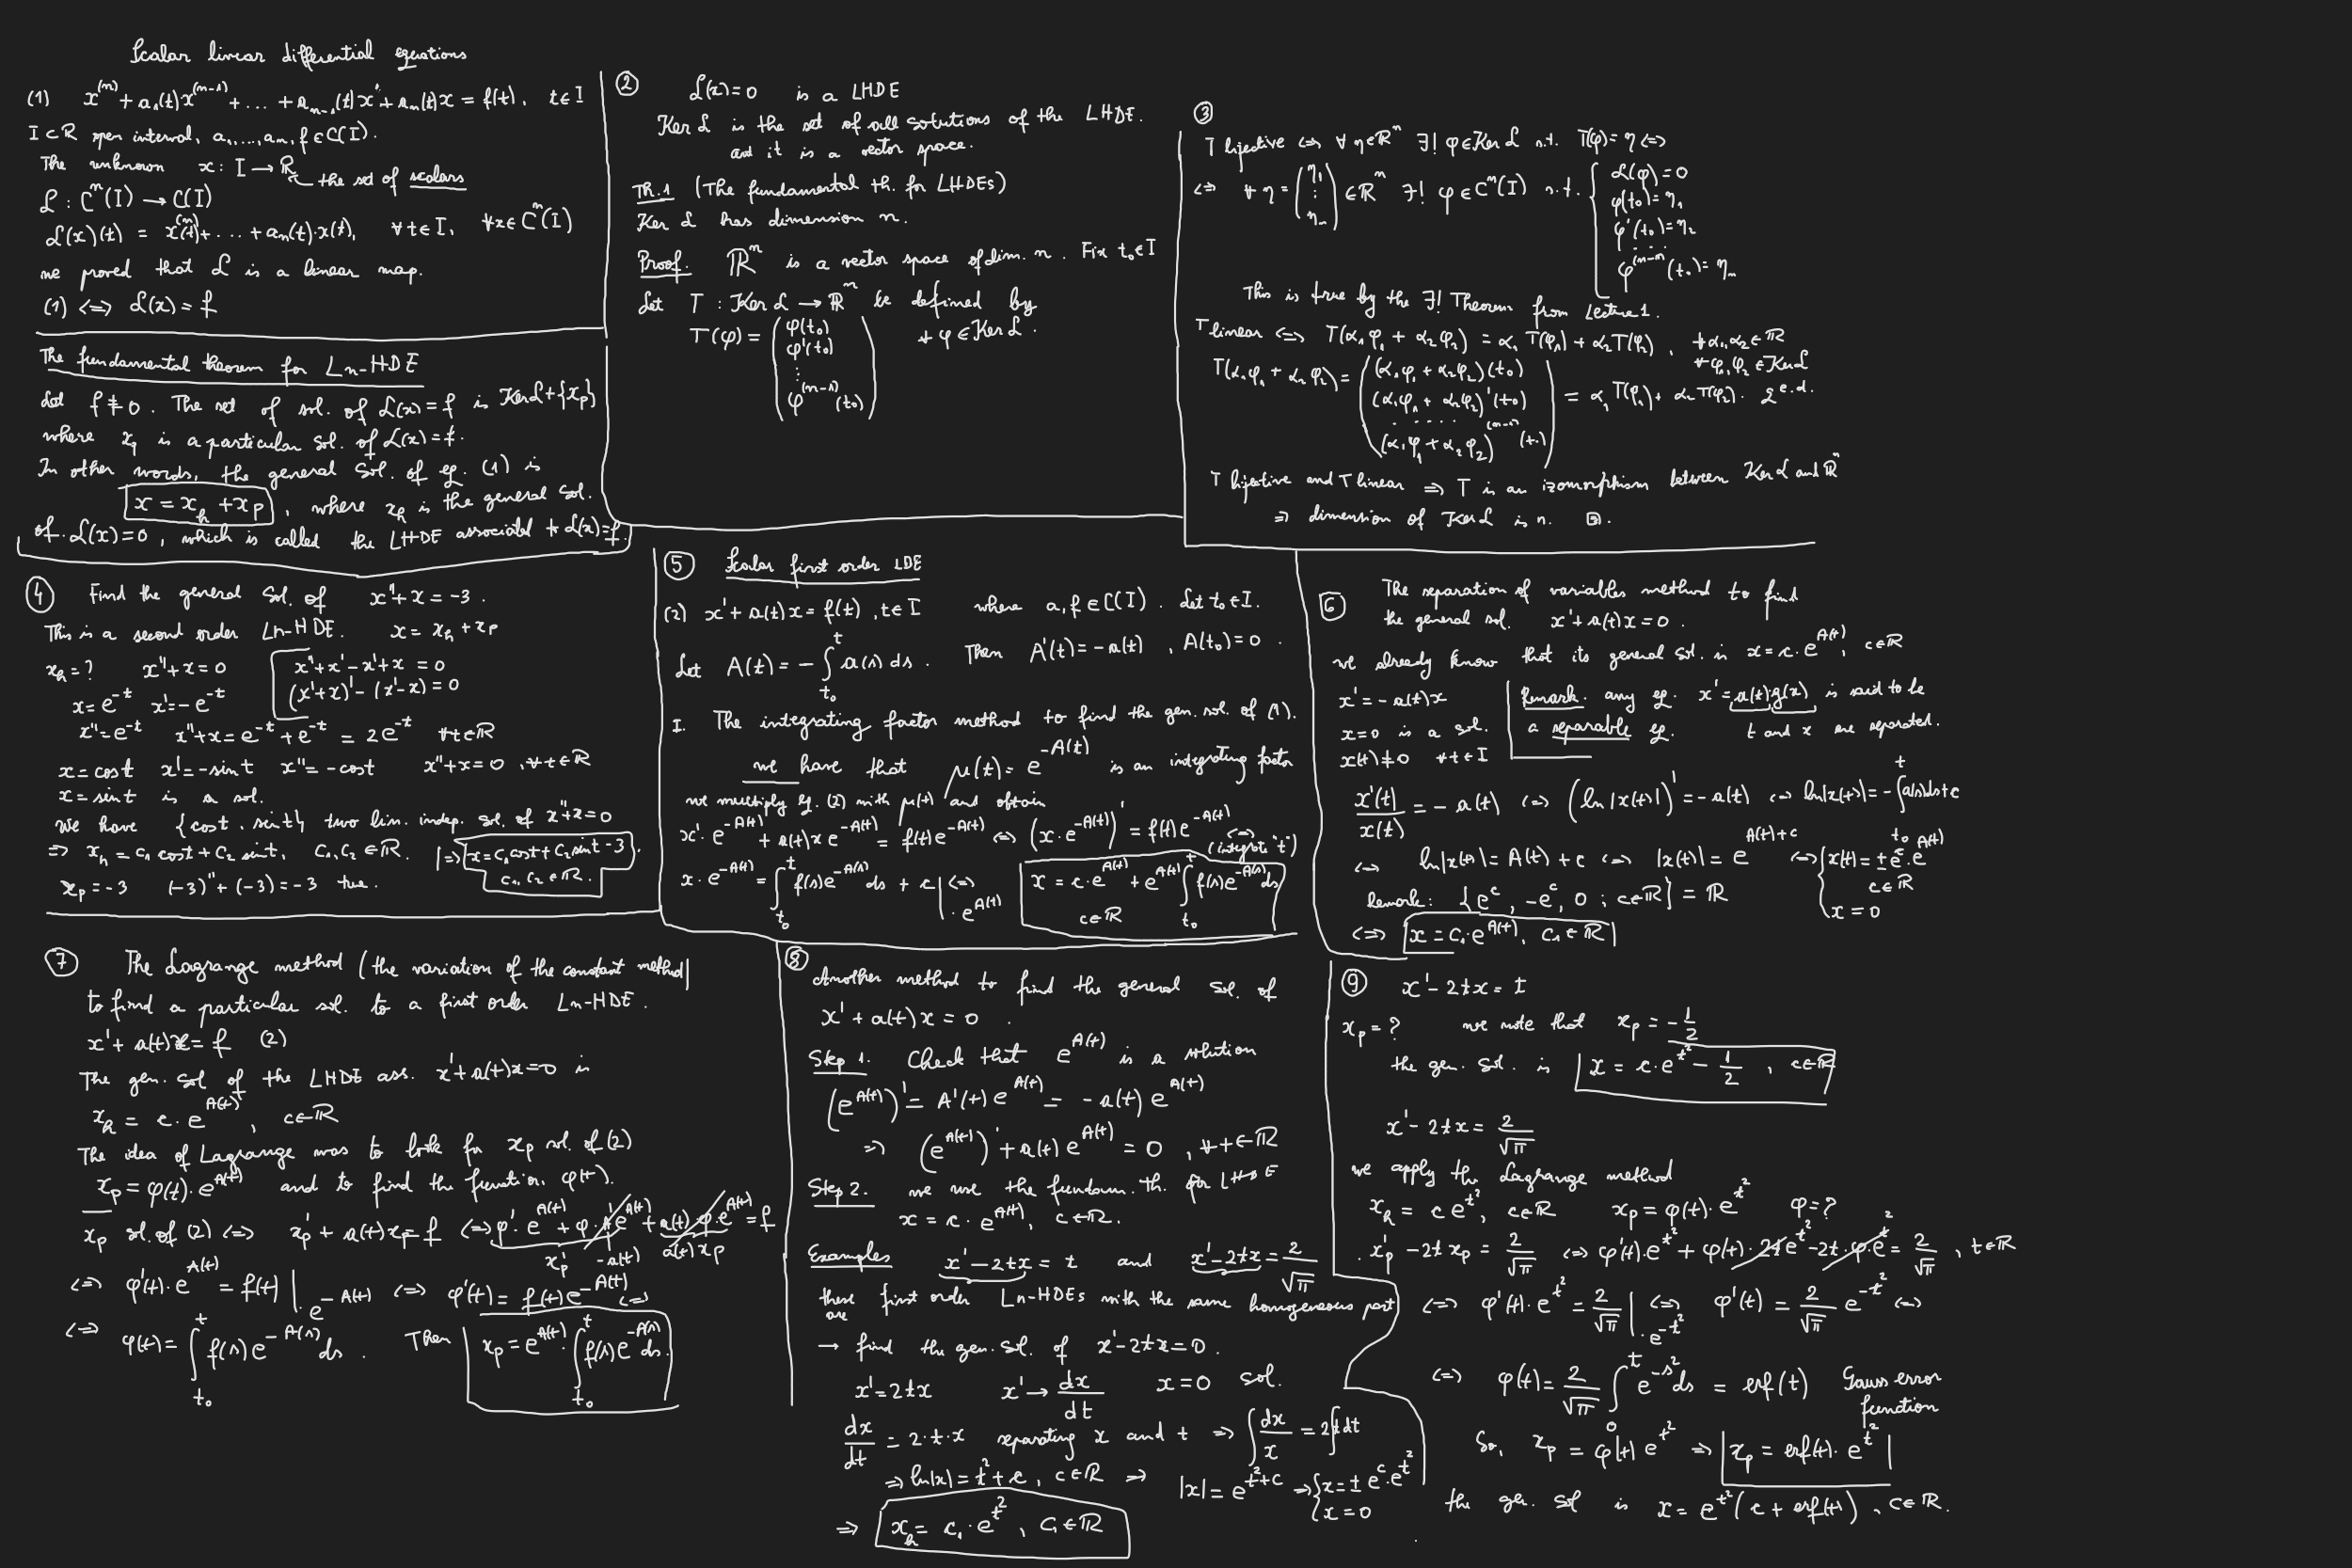 Scalar linear differential equations
(1) x^(n) + a₁(t)x^(n-1) + ... + a_{n-1}(t)x' + a_n(t)x = f(t), t∈I
I⊂ℝ open interval, a₁,...,a_n, f∈C(I).
The unknown x: I→ℝ
the set of scalars
ℒ: C^n(I) → C(I)
ℒ(x)(t) = x^(n)(t)+...+a_n(t)·x(t), ∀t∈I, ∀x∈C^n(I)
we proved that ℒ is a linear map.
(1) <=> ℒ(x) = f
The fundamental theorem for Ln-HDE
Let f≠0. The set of sol. of ℒ(x)=f is Kerℒ+{x_p}
where x_p is a particular sol. of ℒ(x)=f.
In other words, the general sol. of eq. (1) is
x = x_h + x_p, where x_h is the general sol.
of ℒ(x)=0, which is called the LHDE associated to ℒ(x)=f.
②
ℒ(x)=0 is a LHDE
Ker ℒ is the set of all solutions of the LHDE.
and it is a vector space.
Th.1 (The fundamental th. for LHDEs)
Ker ℒ has dimension n.
Proof. ℝ^n is a vector space of dim. n. Fix t₀∈I
Let T: Ker ℒ → ℝ^n be defined by
T(φ) = (φ(t₀) φ'(t₀) ⋮ φ^(n-1)(t₀)) ∀φ∈Ker ℒ.
③
T bijective <=> ∀η∈ℝ^n ∃! φ∈Ker ℒ s.t. T(φ)=η <=>
<=> ∀η = (η₁ ⋮ η_n) ∈ℝ^n ∃! φ∈C^n(I) s.t. { ℒ(φ)=0
φ(t₀)=η₁
φ'(t₀)=η₂
....
φ^(n-1)(t₀)=η_n
This is true by the ∃! Theorem from Lecture 1.
T linear <=> T(α₁φ₁ + α₂φ₂) = α₁T(φ₁) + α₂T(φ₂), ∀α₁,α₂∈ℝ
∀φ₁,φ₂∈Kerℒ
T(α₁φ₁ + α₂φ₂) = ((α₁φ₁ + α₂φ₂)(t₀) (α₁φ₁ + α₂φ₂)'(t₀) ..... (α₁φ₁ + α₂φ₂)^(n-1)(t₀)) = α₁T(φ₁) + α₂T(φ₂). q.e.d.
T bijective and T linear => T is an izomorphism between Ker ℒ and ℝ^n
=> dimension of Ker ℒ is n. □.
④ Find the general sol. of x''+x = -3.
This is a second order Ln-HDE. x = x_h + x_p
x_h = ? x''+x=0
x''+x'-x'+x = 0
(x'+x)'-(x'-x) = 0
x=e^{-t} x'=-e^{-t}
x''=e^{-t} x''+x=e^{-t}+e^{-t} = 2e^{-t} ∀t∈ℝ
x=cost x'=-sint x''=-cost x''+x=0, ∀t∈ℝ
x=sint is a sol.
We have {cost, sint} two lin. indep. sol. of x''+x=0
=> x_h = c₁cost + c₂sint, c₁,c₂∈ℝ. |=> x=c₁cost+c₂sint-3
c₁,c₂∈ℝ.
x_p=-3 (-3)''+(-3)=-3 true.
⑤ Scalar first order LDE
(2) x' + a(t)x = f(t), t∈I where a,f∈C(I). Let t₀∈I.
Let A(t) = -∫_{t₀}^{t} a(s)ds. Then A'(t)=-a(t), A(t₀)=0.
I. The integrating factor method to find the gen. sol. of (1).
we have that μ(t)=e^{-A(t)} is an integrating factor
we multiply eq. (2) with μ(t) and obtain
x'·e^{-A(t)} + a(t)x e^{-A(t)} = f(t)e^{-A(t)} <=> (x·e^{-A(t)})' = f(t)e^{-A(t)} <=>
(integrate "t")
x·e^{-A(t)} = ∫_{t₀}^{t} f(s)e^{-A(s)}ds + c | ·e^{A(t)} <=> x = c·e^{A(t)} + e^{A(t)}∫_{t₀}^{t} f(s)e^{-A(s)}ds
c∈ℝ
⑥ The separation of variables method to find
the general sol. x'+a(t)x=0.
we already know that its general sol. is x=c·e^{A(t)}, c∈ℝ
x'=-a(t)x
Remark. any eq. x'=a(t)·g(x) is said to be
a separable eq. t and x are separated.
x=0 is a sol.
x(t)≠0 ∀t∈I
x'(t)/x(t) = -a(t) <=> (ln|x(t)|)' = -a(t) <=> ln|x(t)| = -∫_{t₀}^{t} a(s)ds+c
<=> ln|x(t)| = A(t)+c <=> |x(t)| = e^{A(t)+c} <=> { x(t)=±e^c·e^{A(t)}
c∈ℝ
x=0
Remark: {e^c, -e^c, 0; c∈ℝ} = ℝ
<=> x=c₁·e^{A(t)}, c₁∈ℝ
⑦ The Lagrange method (the variation of the constant method)
to find a particular sol. to a first order Ln-HDE.
x'+a(t)x=f (2)
The gen. sol of the LHDE ass. x'+a(t)x=0 is
x_h = c·e^{A(t)}, c∈ℝ
The idea of Lagrange was to look for x_p sol. of (2)
x_p=φ(t)·e^{A(t)} and to find the function φ(t).
x_p sol. of (2) <=> x_p'+a(t)x_p=f <=> φ'·e^{A(t)} + φ·A'e^{A(t)} + a(t)φ·e^{A(t)} = f
x_p' -a(t) a(t)x_p
<=> φ'(t)·e^{A(t)} = f(t) | ·e^{-A(t)} <=> φ'(t)=f(t)e^{-A(t)} <=>
<=> φ(t)=∫_{t₀}^{t} f(s)e^{-A(s)}ds. Then x_p=e^{A(t)}·∫_{t₀}^{t} f(s)e^{-A(s)}ds.
⑧
Another method to find the general sol. of
x'+a(t)x=0.
Step 1. Check that e^{A(t)} is a solution
(e^{A(t)})' = A'(t)e^{A(t)} = -a(t)e^{A(t)}
=> (e^{A(t)})'+a(t)e^{A(t)} = 0, ∀t∈ℝ
Step 2. we use the fundam. Th. for LHDE
x=c·e^{A(t)}, c∈ℝ.
Examples x'-2tx = t and x'-2tx = 2/√π
these are first order Ln-HDEs with the same homogeneous part
→ find the gen. sol. of x'-2tx=0.
x'=2tx x'→dx/dt x=0 sol.
dx/dt = 2·t·x separating x and t => ∫dx/x = 2∫tdt
=> ln|x| = t²+c, c∈ℝ => |x| = e^{t²+c} => { x=±e^c·e^{t²}
x=0
=> x_h = c₁·e^{t²}, c₁∈ℝ
⑨ x'-2tx = t
x_p=? we note that x_p=-1/2
the gen. sol. is x=c·e^{t²}-1/2, c∈ℝ
x'-2tx = 2/√π
we apply the Lagrange method
x_h = ce^{t²}, c∈ℝ x_p=φ(t)·e^{t²} φ=?
x_p'-2tx_p = 2/√π <=> φ'(t)·e^{t²} + φ(t)·2te^{t²} - 2t·φ·e^{t²} = 2/√π, t∈ℝ
<=> φ'(t)·e^{t²} = 2/√π | ·e^{-t²} <=> φ'(t) = 2/√π e^{-t²} <=>
<=> φ(t) = 2/√π ∫_0^t e^{-s²}ds = erf(t) Gauss error
function
So, x_p = φ(t)e^{t²} => x_p = erf(t)·e^{t²}
the gen. sol is x = e^{t²}(c + erf(t)), c∈ℝ.